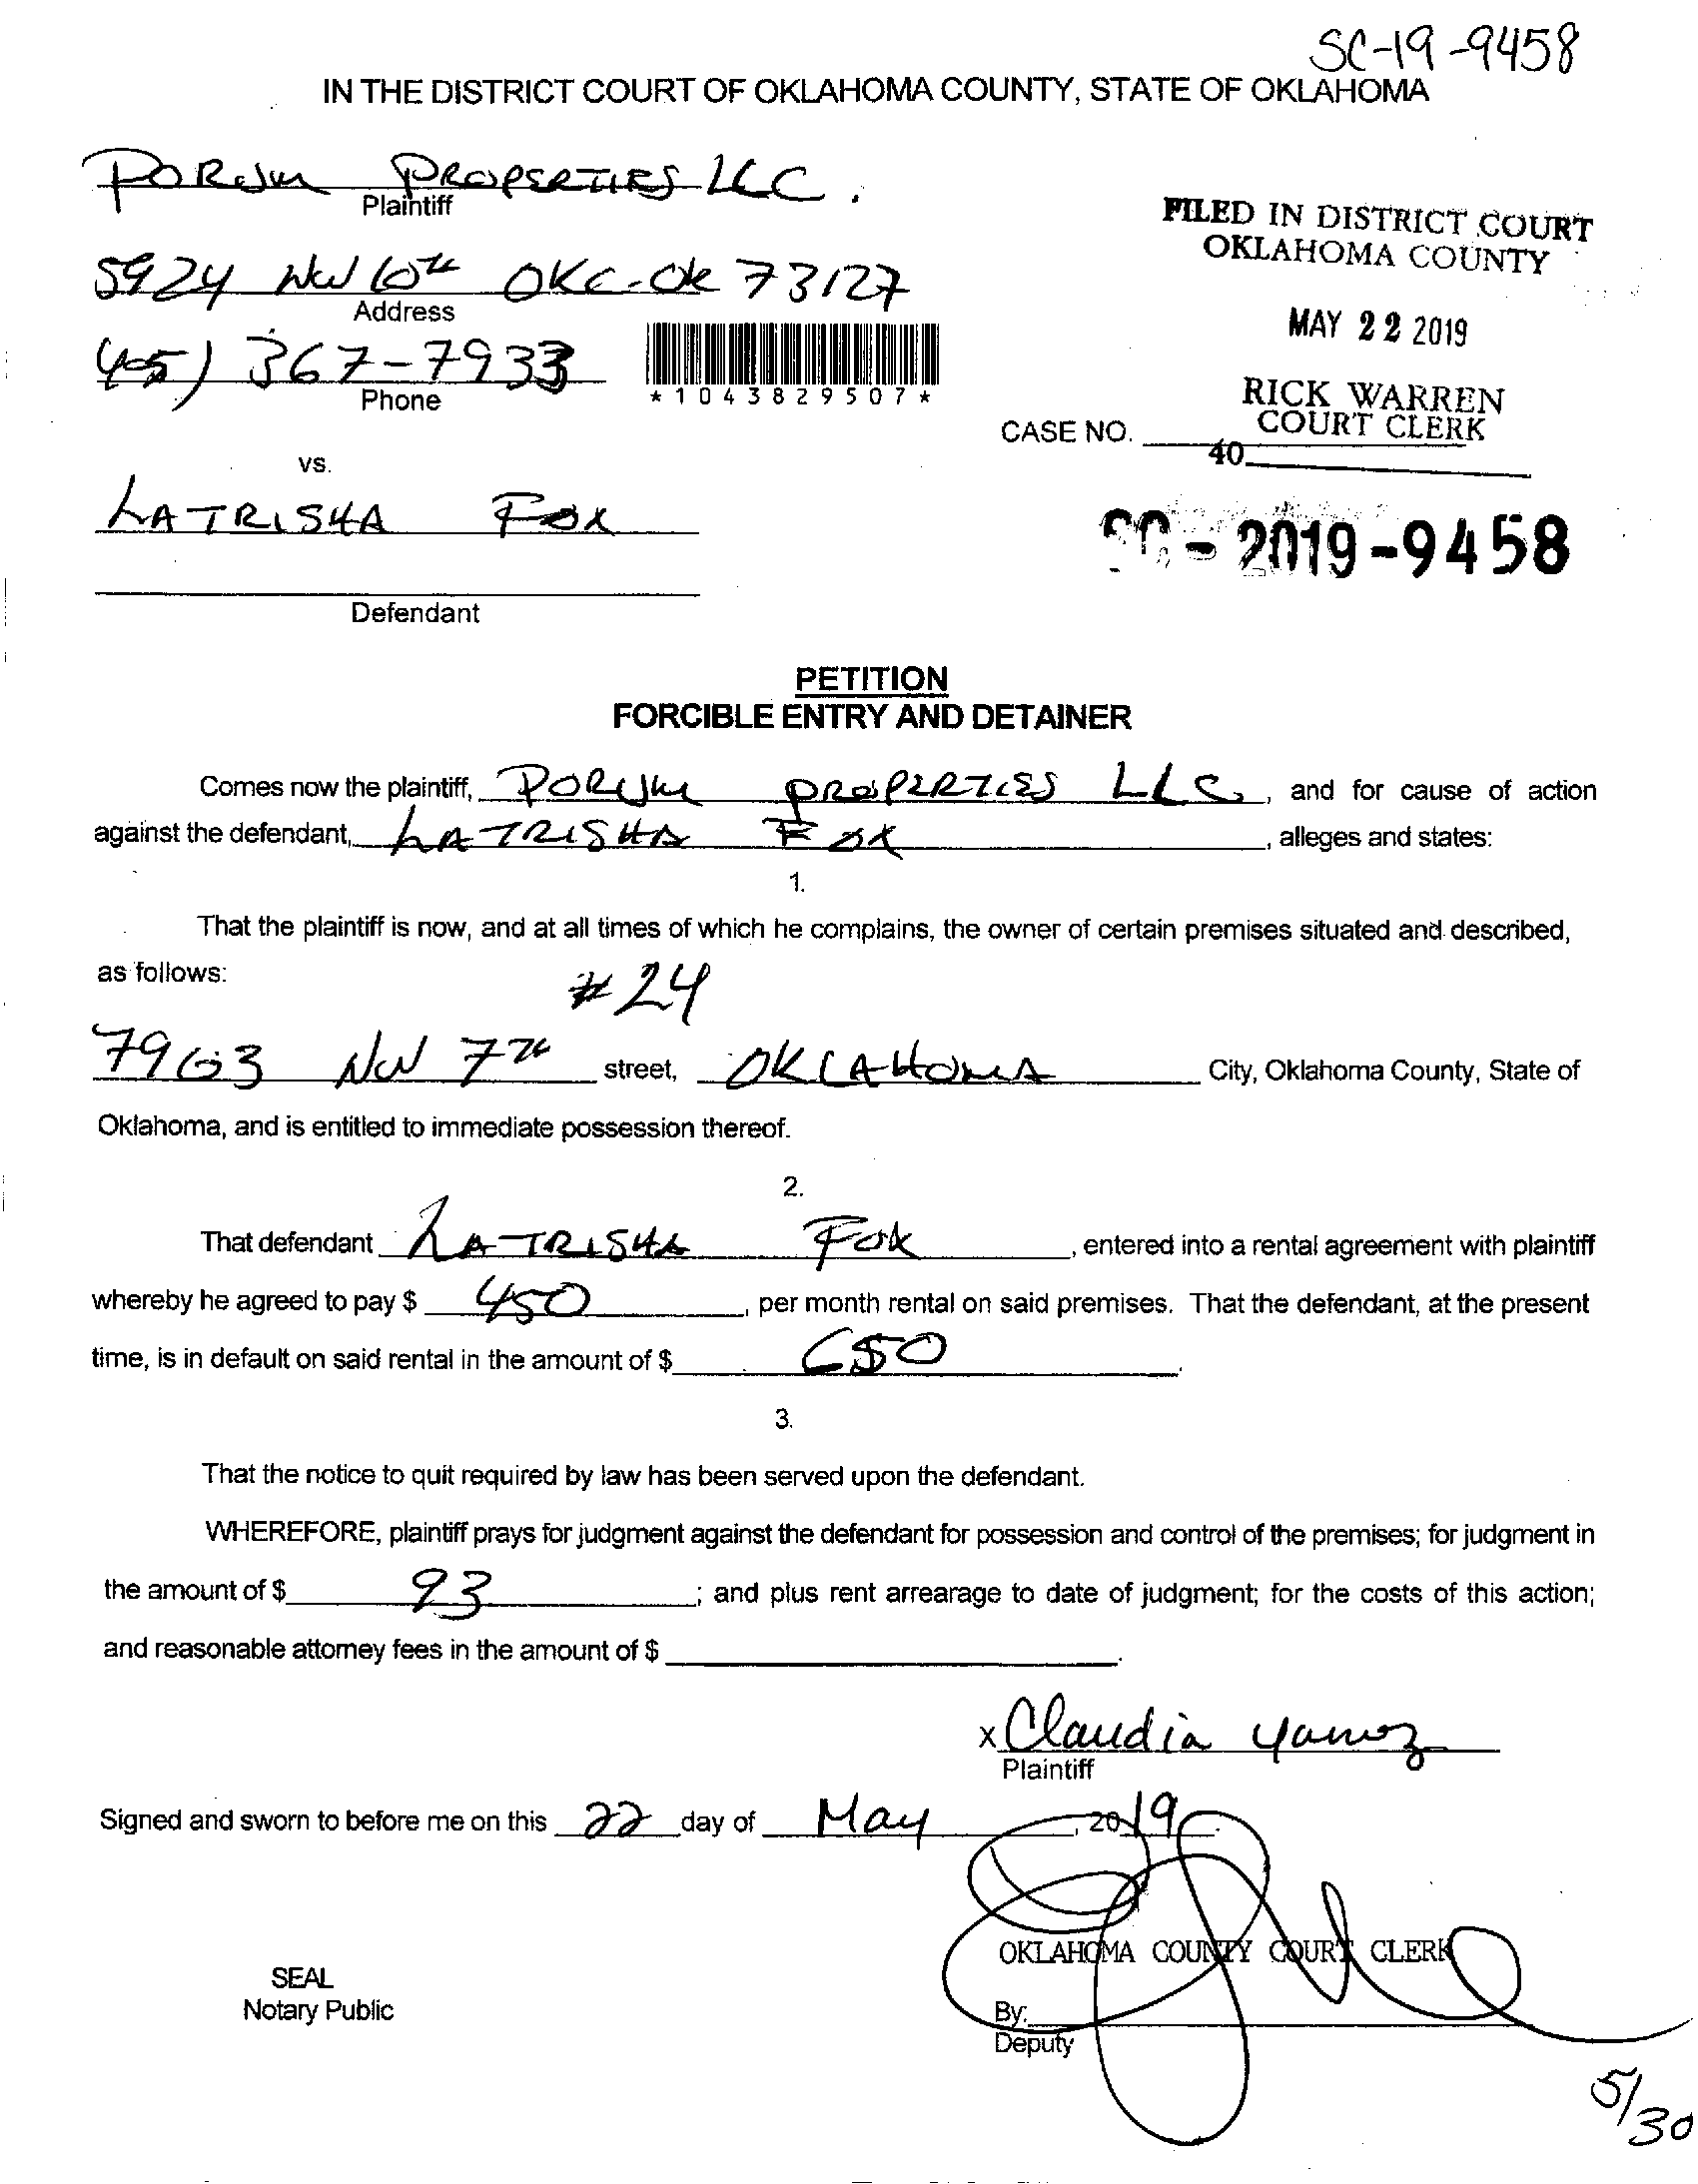 SC-19-9458
IN THE DISTRICT COURT OF OKLAHOMA COUNTY, STATE OF OKLAHOMA
PROPERTIES LLC.
Plaintiff
5924 NW 10th OKC-OK 73127
Address
FILED IN DISTRICT COURT
OKLAHOMA COUNTY
MAY 22 2019
405) 367-7933
Phone
*1043829507*
RICK WARREN
COURT CLERK
CASE NO.
40
vs.
LATRISHA FOX
SC-2019-9458
Defendant
PETITION
FORCIBLE ENTRY AND DETAINER
Comes now the plaintiff, PROPERTIES LLC, and for cause of action
against the defendant, LATRISHA FOX, alleges and states:
1.
That the plaintiff is now, and at all times of which he complains, the owner of certain premises situated and described,
as follows:
#24
7903 NW 7th street, OKLAHOMA City, Oklahoma County, State of
Oklahoma, and is entitled to immediate possession thereof.
2.
That defendant LATRISHA FOX, entered into a rental agreement with plaintiff
whereby he agreed to pay $ 450, per month rental on said premises. That the defendant, at the present
time, is in default on said rental in the amount of $ 650.
3.
That the notice to quit required by law has been served upon the defendant.
WHEREFORE, plaintiff prays for judgment against the defendant for possession and control of the premises; for judgment in
the amount of $ 93; and plus rent arrearage to date of judgment; for the costs of this action;
and reasonable attorney fees in the amount of $.
x Claudia Yanez
Plaintiff
Signed and sworn to before me on this 22 day of May, 2019.
OKLAHOMA COUNTY COURT CLERK
SEAL
Notary Public
By:
Deputy
5/30